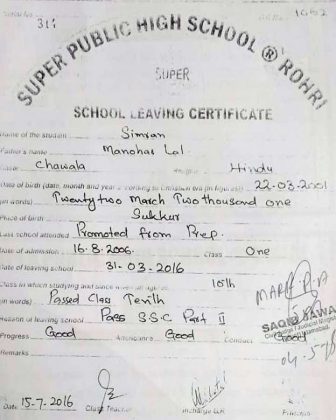 Serial No. 311
G.R. No. 1062
SUPER PUBLIC HIGH SCHOOL ® ROHRI
SUPER
SCHOOL LEAVING CERTIFICATE
Name of the student Simran
Father's name Manohar Lal
Chawala Hindu
Date of birth (date, month and year according to Christian era (in figures) 22-03-2001
(in words) Twenty two March Two thousand one
Place of birth Sukkur
Last school attended Promoted from Prep.
Date of admission 16-8-2006. Class One
Date of leaving school 31-03-2016
Class in which studying and since 10th
(in words) Passed Class Tenth
Reason of leaving school Pass S.S.C Part II
Progress Good Attendance Good Conduct Good
Remarks
Date 15-7-2016 Class Teacher Incharge G.R.
SAQIB